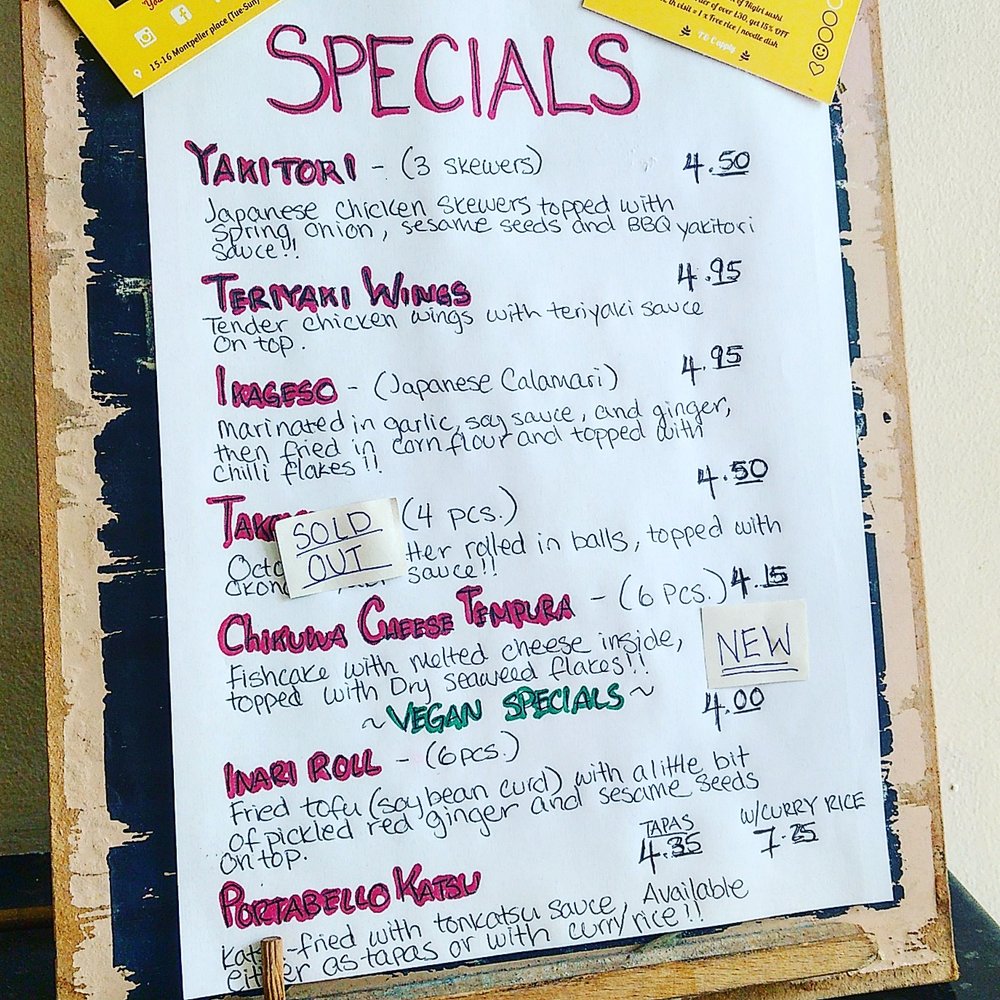 15-16 Montpelier place (Tue-Sun)
of Nigiri sushi
der of over £30, get 15% OFF
th visit = 1 x Free rice / noodle dish
T & C apply
SPECIALS
YAKITORI - (3 skewers) 4.50
Japanese chicken skewers topped with
spring onion, sesame seeds and BBQ yakitori
sauce!!
TERIYAKI WINGS 4.95
Tender chicken wings with teriyaki sauce
on top.
IKAGESO - (Japanese Calamari) 4.95
marinated in garlic, soy sauce, and ginger,
then fried in corn flour and topped with
chilli flakes!!
SOLD
OUT
(4 pcs.) 4.50
rolled in balls, topped with
sauce!!
CHIKUWA CHEESE TEMPURA - (6 PCS.) 4.15
NEW
Fishcake with melted cheese inside,
topped with Dry seaweed flakes!!
~ VEGAN SPECIALS ~
INARI ROLL - (6pcs.) 4.00
Fried tofu (soybean curd) with a little bit
of pickled red ginger and sesame seeds
on top.
TAPAS W/CURRY RICE
4.35 7.25
PORTABELLO KATSU
-fried with tonkatsu sauce, Available
either as tapas or with curry rice!!